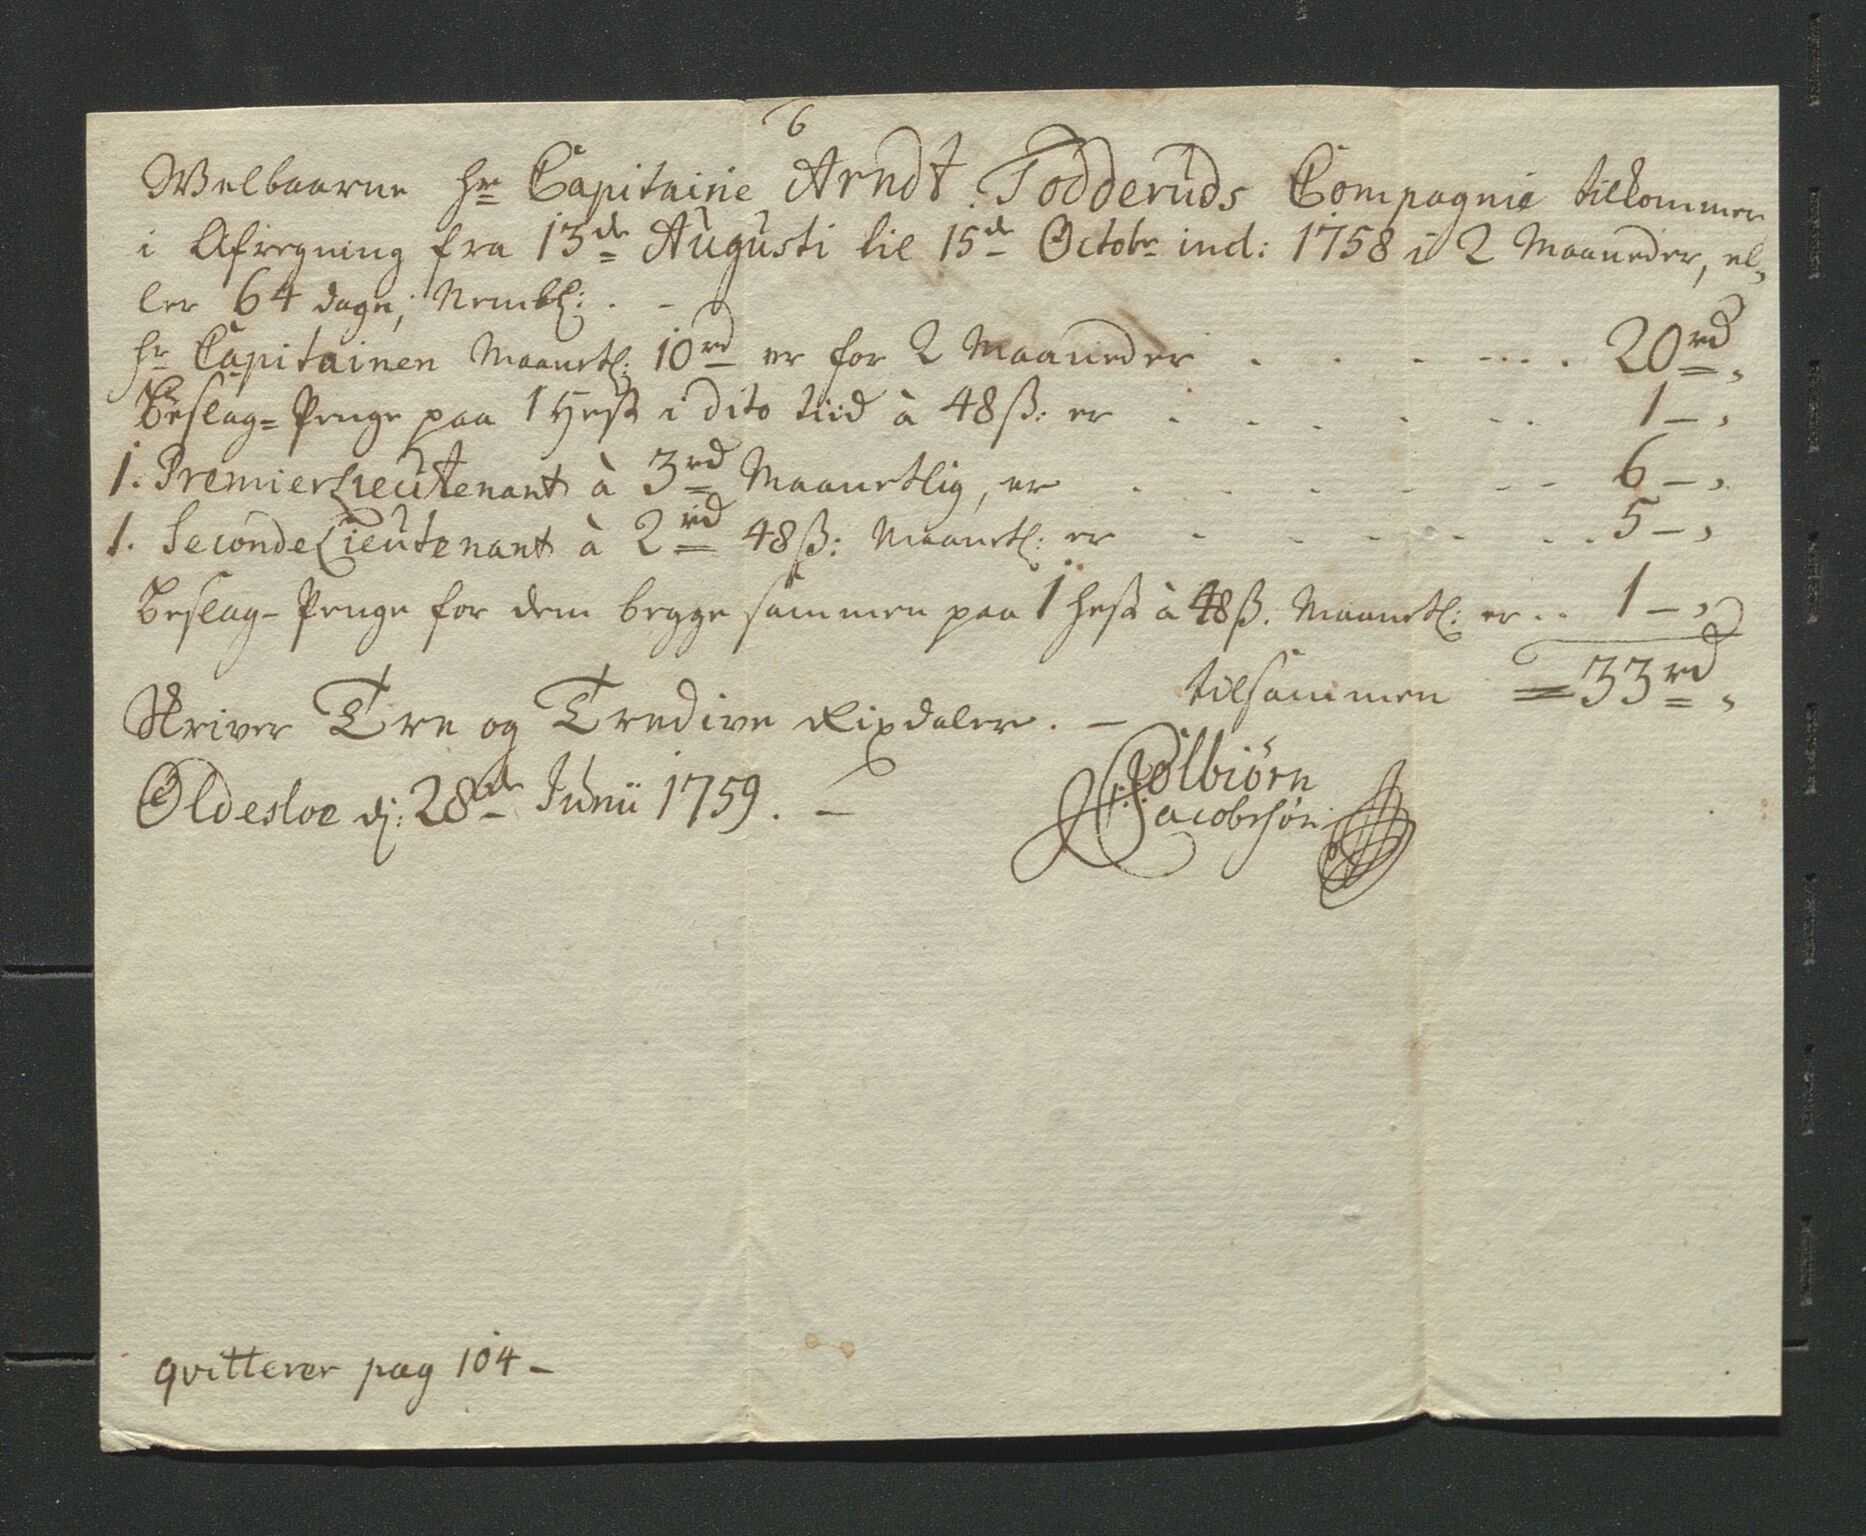 6
Welbaarne Hr Capitaine Arndt Todderuds Compagnie tilkommer
i Afregning fra 13de Augusti til 15de Octobr incl: 1758 i 2 Maaneder, el-
ler 64 dage; Nembl: . -
Hr Capitainen Maanetl: 10rd er for 2 Maaneder . . . . . . . 20rd,
Beslag=Penge paa 1 Hest i dito tiid à 48 ß: er . . . . - - 1 - ,
1. PremierLieutenant à 3rd Maanetlig, er . . . . - - 6 - ,
1. SecondeLieutenant à 2rd 48 ß: Maanetl: er - - - - - . . 5 - ,
Beslag-Penge for dem begge sammen paa 1 hest à 48 ß. Maanetl: er . . 1 - ,
tilsammen = 33rd,
Skriver Tre og Tredive Rixdaler. -
Oldesloe dj: 28de Junii 1759. -
Tolbiörn
Jacobsön
qvitterer pag 104 -